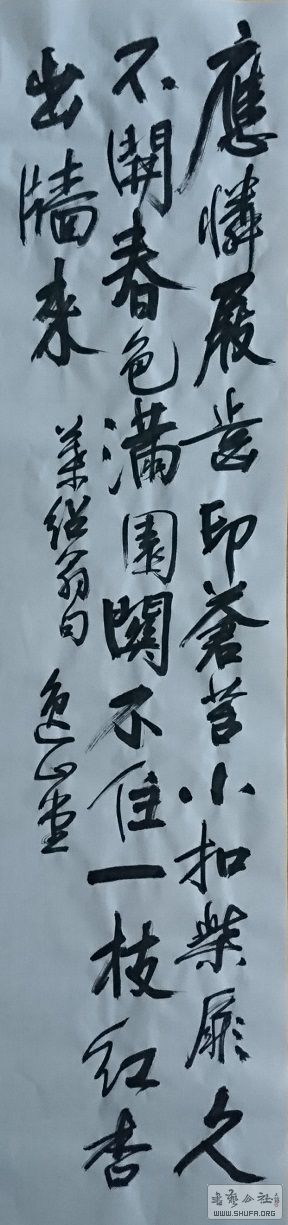 應憐屐齒印蒼苔小扣柴扉久
不開春色滿園關不住一枝紅杏
出牆來
葉紹翁句 逸山堂
书法公社
WWW.SHUFA.ORG